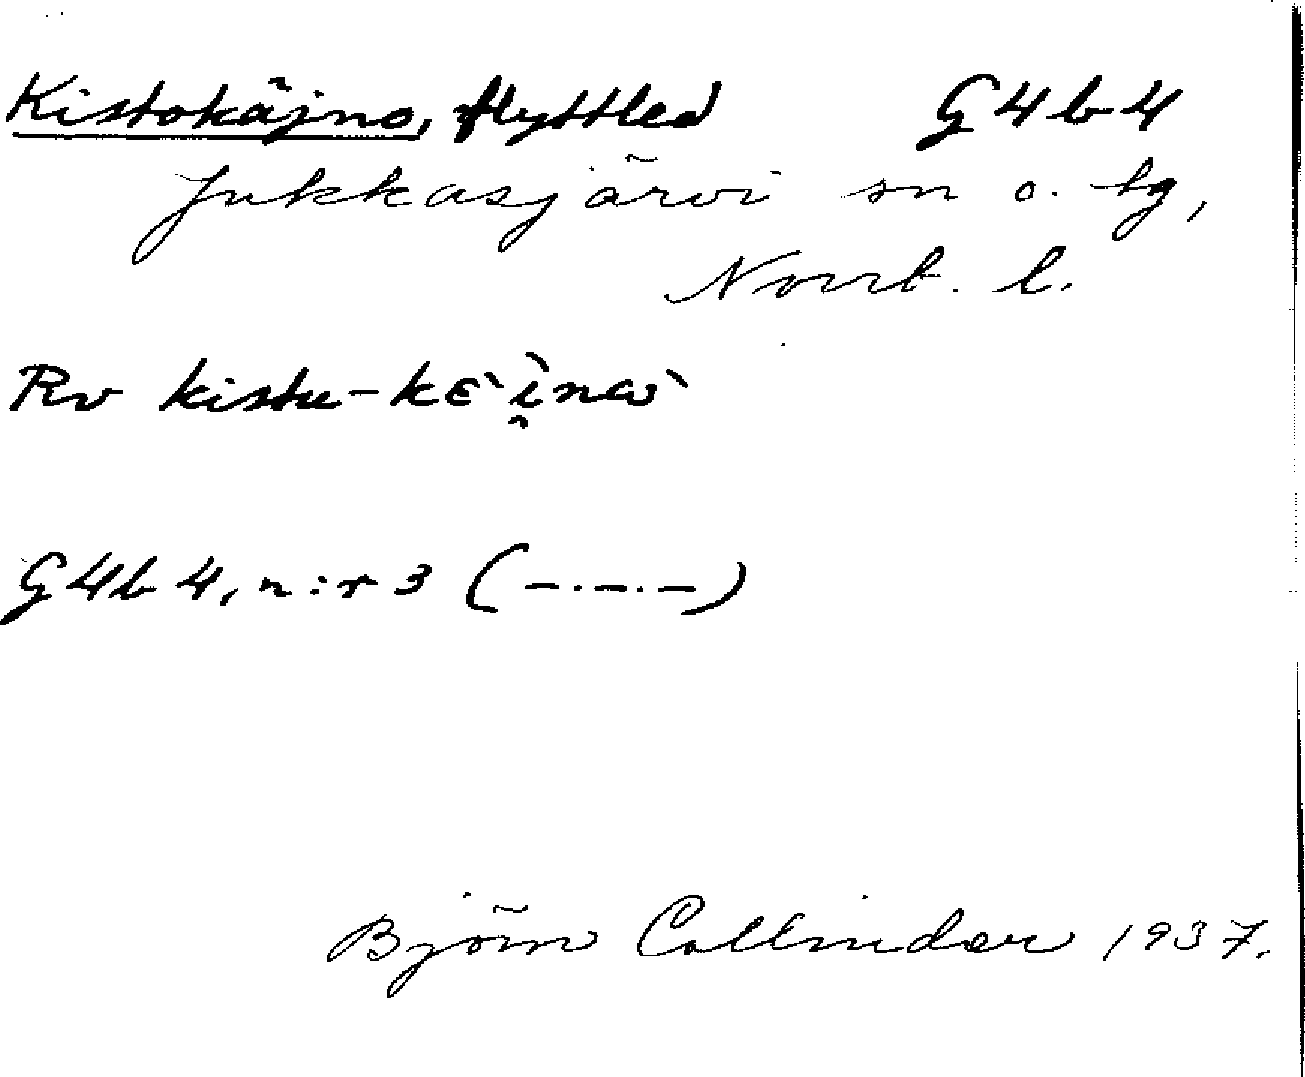 Kistokäjno, flyttled G4b4
Jukkasjärvi sn o. tg,
Norrb. l.
Rv kistu-kɛ`i̯nω`
G4b4, n:r 3 (–.–.–)
Björn Collinder 1937.